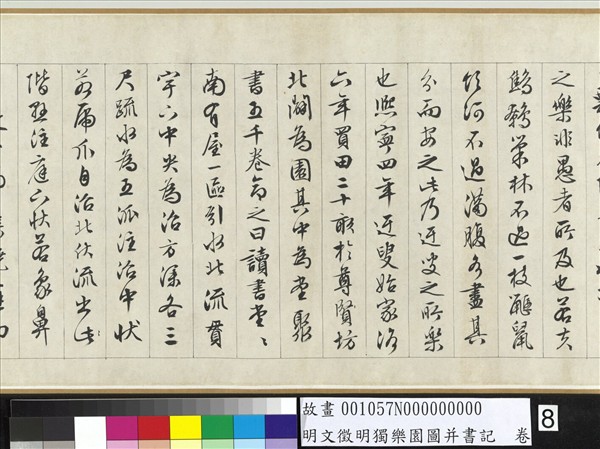 之樂非愚者所及也若夫
鷦鷯巢林不過一枝鼴鼠
飲河不過滿腹各盡其
分而安之此乃迂叟之所樂
也熙寧四年迂叟始家洛
六年買田二十畝於尊賢坊
北闢為園其中為堂聚
書五千卷命之曰讀書堂〻
南有屋一區引水北流貫
宇下中央為沼方深各三
尺疏水為五派注沼中狀
若虎爪自沼北伏流出北
階懸注庭下狀若象鼻
故畫 001057N000000000
明文徵明獨樂園圖并書記 卷
8